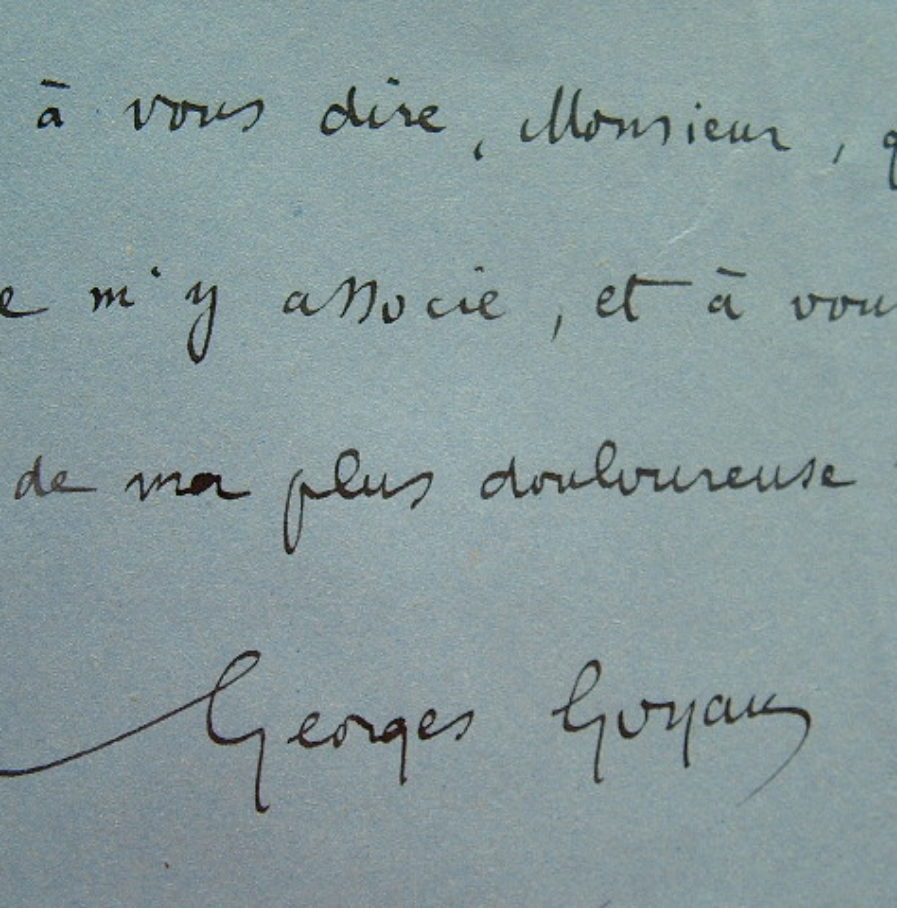 à vous dire, Monsieur, q
e m'y associe, et à vou
de ma plus douloureuse
Georges Goyau